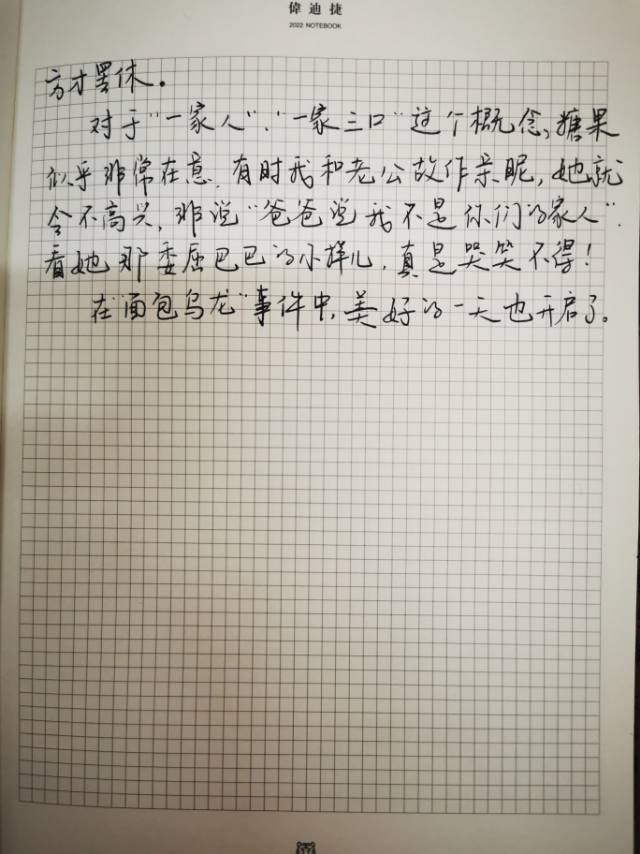 偉迪捷
2022 NOTEBOOK
方才罢休。
对于“一家人”、“一家三口”这个概念,糖果
似乎非常在意,有时我和老公故作亲昵,她就
会不高兴,非说“爸爸说我不是你们的家人”.
看她那委屈巴巴的小样儿,真是哭笑不得!
在“面包乌龙”事件中,美好的一天也开启了。